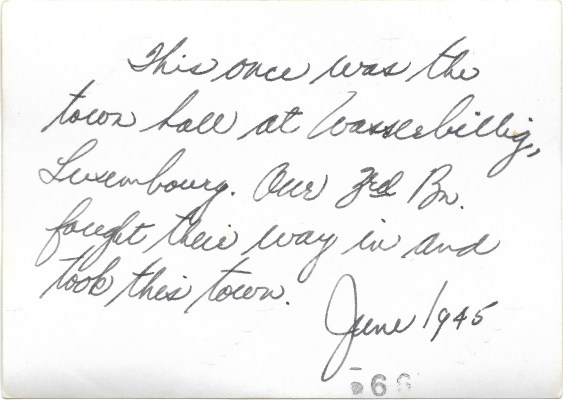 This once was the
town hall at Wasserbillig,
Luxembourg. Our 3rd Bn.
fought their way in and
took this town.
June 1945
66